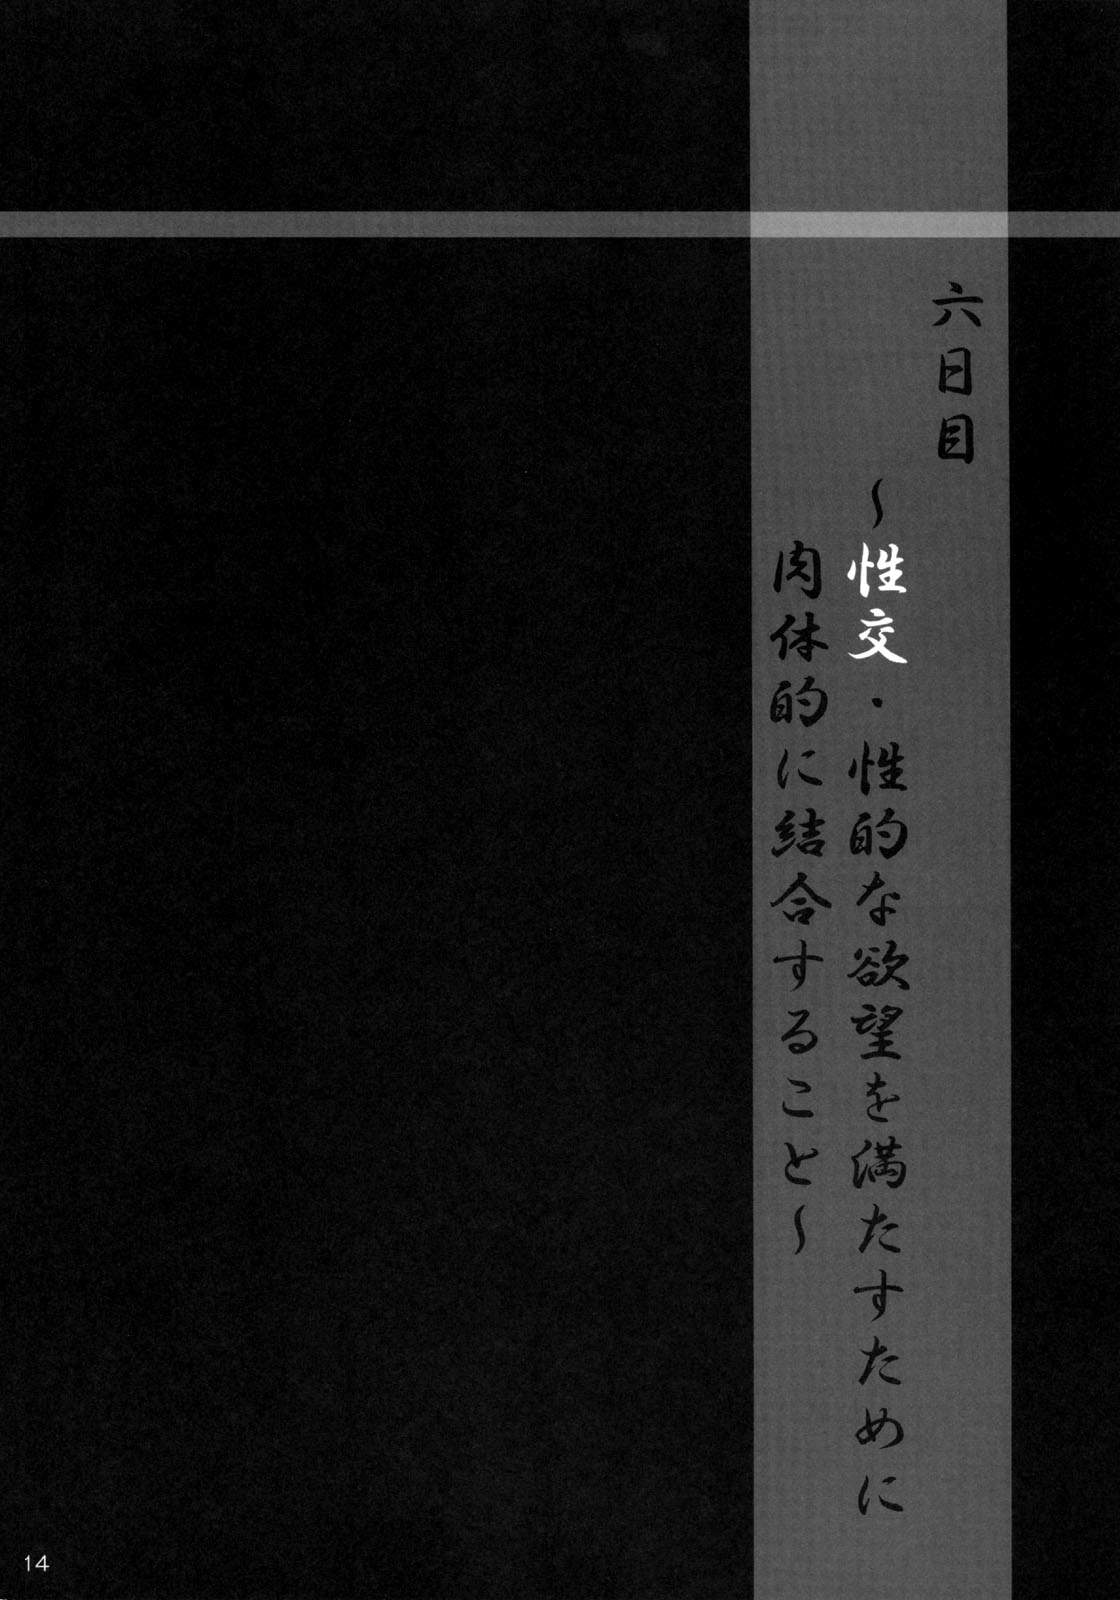 六日目
～性交・性的な欲望を満たすために
肉体的に結合すること～
14